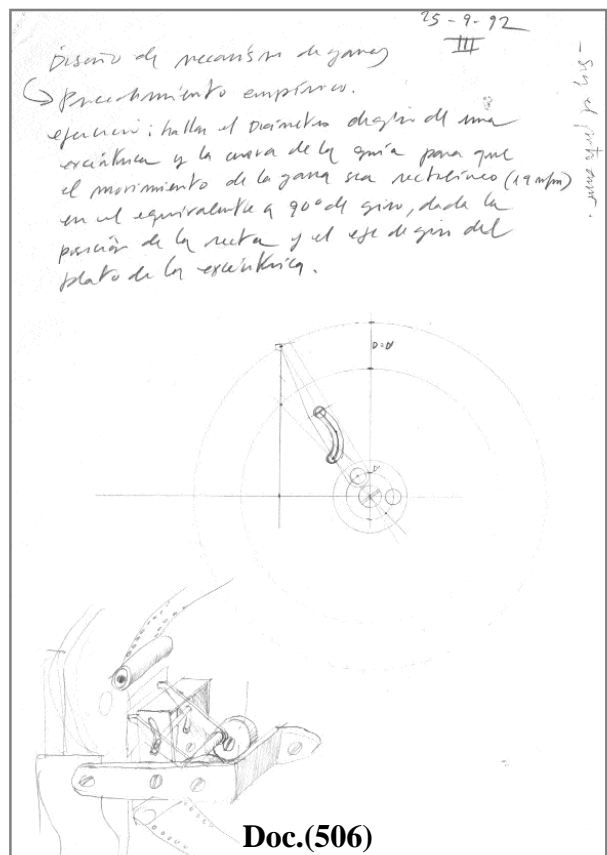 25-9-92
III
Diseño de mecanismo de garras
Procedimiento empírico.
ejercicio: hallar el Diámetro de giro de una
excéntrica y la curva de la guía para que
el movimiento de la garra sea rectilíneo (19 m/m)
en el equivalente a 90º de giro, dada la
posición de la recta y el eje de giro del
plato de la excéntrica.
D=d'
d'
Doc.(506)